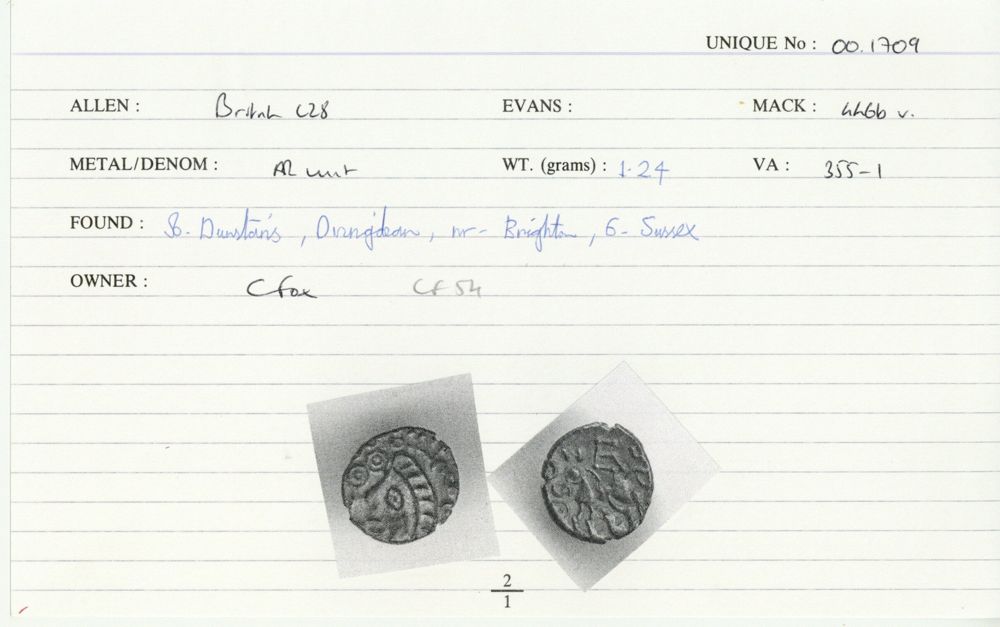 UNIQUE No : 00.1709
ALLEN : British L28 EVANS : MACK : 446b v.
METAL/DENOM : AR unit WT. (grams) : 1.24 VA : 355-1
FOUND : St. Dunstan's, Ovingdean, nr- Brighton, E- Sussex
OWNER : C Fox CF 54
2
1